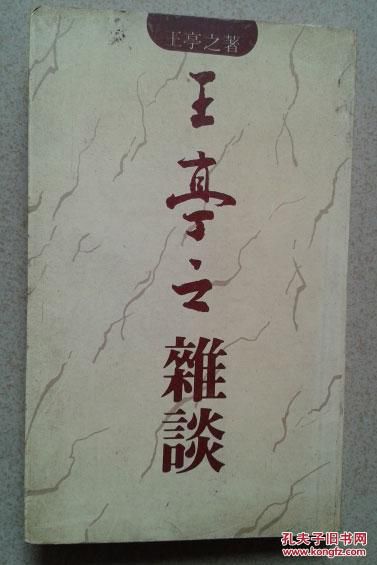 王亭之著
王亭之
雜談
孔夫子旧书网
www.kongfz.com